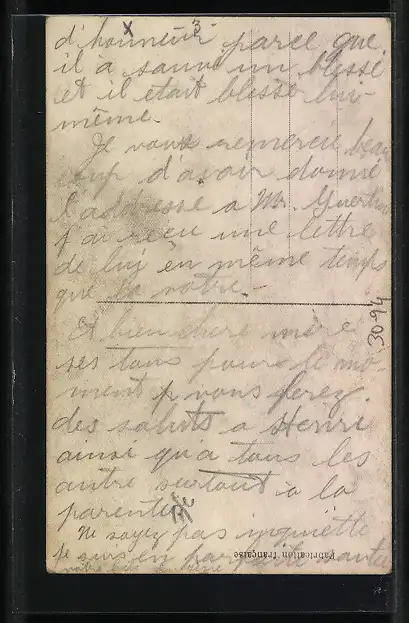 d'honneur parce que
il a sauvé un blessé
et il était blessé lui-
même.
Je vous remercie beau
coup d'avoir donné
l'addresse a Mr.
j'ai reçu une lettre
de lui en même temps
que la votre.-
Et bien chere mère
ses tous pour le mo-
ment p vous ferez
des saluts a Henri
ainsi qu'a tous les
autre surtout à la
parenté
Ne soyez pas inquiette
je suis en parfaite santé
Fabrication française
30-94
3
x